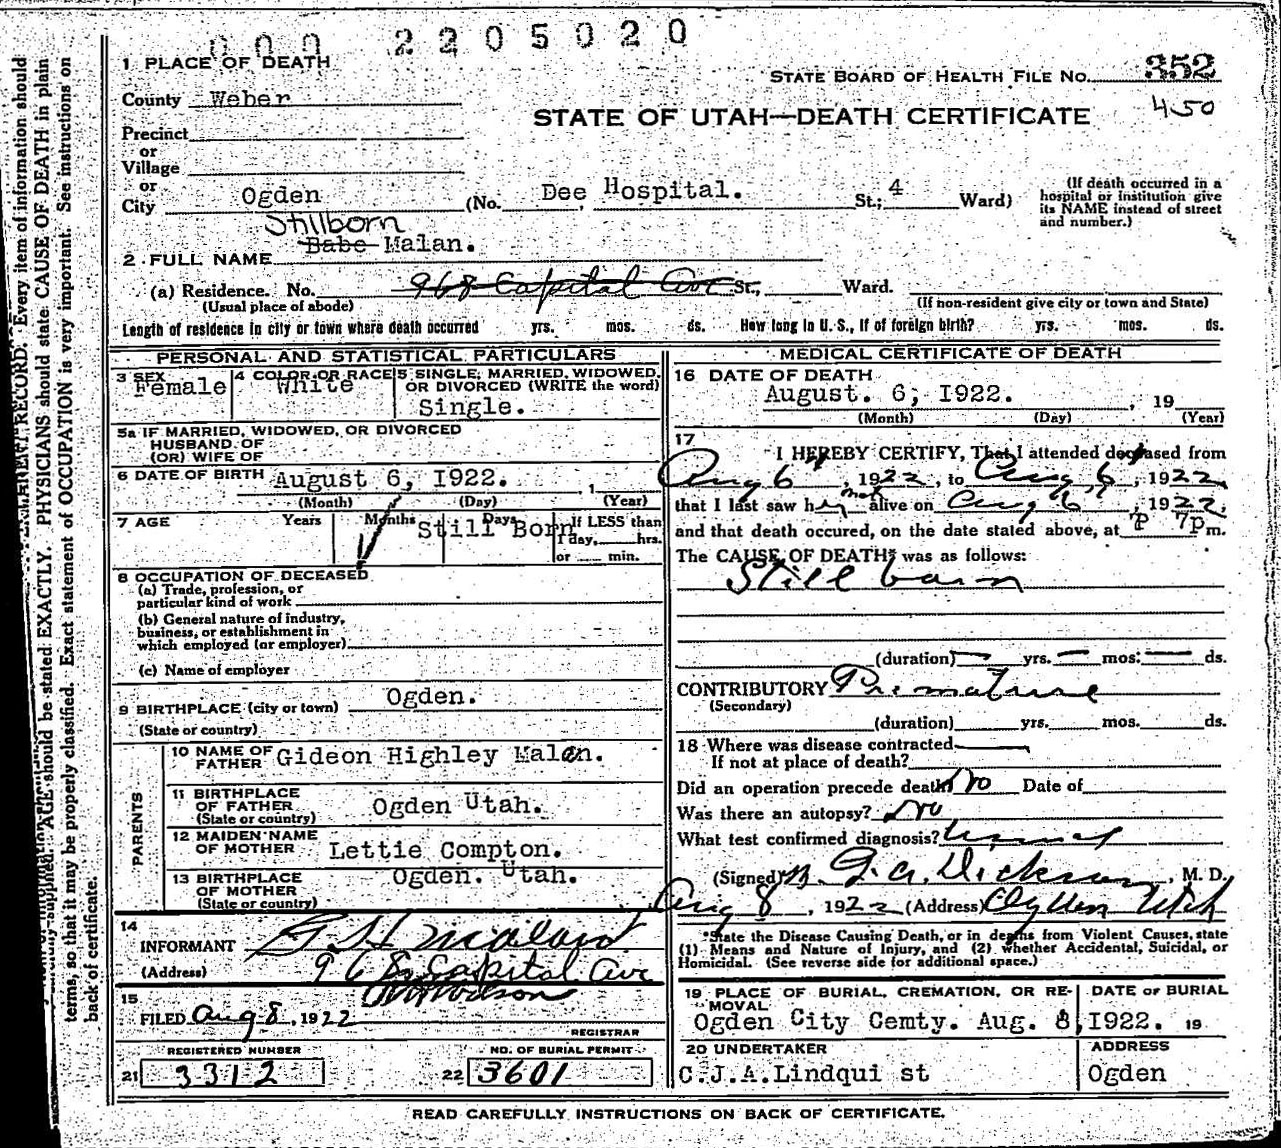 000 2205020
1 PLACE OF DEATH
STATE BOARD OF HEALTH FILE NO. 352
County Weber
STATE OF UTAH—DEATH CERTIFICATE 450
Precinct
or
Village
or
City Ogden (No. Dee Hospital. St.; 4 Ward)
(If death occurred in a hospital or institution give its NAME instead of street and number.)
Stillborn
2 FULL NAME Babe Malan.
(a) Residence. No. 968 Capital Ave St., Ward.
(Usual place of abode) (If non-resident give city or town and State)
Length of residence in city or town where death occurred yrs. mos. ds. How long in U. S., if of foreign birth? yrs. mos. ds.
PERSONAL AND STATISTICAL PARTICULARS
3 SEX Female
4 COLOR OR RACE White
5 SINGLE, MARRIED, WIDOWED, OR DIVORCED (WRITE the word) Single.
5a IF MARRIED, WIDOWED, OR DIVORCED
HUSBAND OF
(OR) WIFE OF
6 DATE OF BIRTH August 6, I922. , 1
(Month) (Day) (Year)
7 AGE Years Months Days If LESS than
Still Born 1 day, hrs.
or min.
8 OCCUPATION OF DECEASED
(a) Trade, profession, or
particular kind of work
(b) General nature of industry,
business, or establishment in
which employed (or employer)
(c) Name of employer
9 BIRTHPLACE (city or town) Ogden.
(State or country)
PARENTS
10 NAME OF FATHER Gideon Highley Malan.
11 BIRTHPLACE OF FATHER (State or country) Ogden Utah.
12 MAIDEN NAME OF MOTHER Lettie Compton.
13 BIRTHPLACE OF MOTHER (State or country) Ogden. Utah.
14
INFORMANT G H
(Address) 968 Capital Ave
15
FILED Aug 8, 1922
REGISTRAR
REGISTERED NUMBER NO. OF BURIAL PERMIT
21 3312 22 3601
MEDICAL CERTIFICATE OF DEATH
16 DATE OF DEATH
August. 6, I922. , 19
(Month) (Day) (Year)
17
I HEREBY CERTIFY, That I attended deceased from
Aug 6, 1922, to Aug 6, 1922,
that I last saw h alive on Aug 6, 1922,
and that death occured, on the date stated above, at P 7p m.
The CAUSE OF DEATH* was as follows:
Still born
(duration) — yrs. — mos. — ds.
CONTRIBUTORY Premature
(Secondary)
(duration) yrs. mos. ds.
18 Where was disease contracted
If not at place of death?
Did an operation precede death No Date of
Was there an autopsy? No
What test confirmed diagnosis?
(Signed) G. A. Dickson, M. D.
Aug 8, 1922 (Address) Ogden Utah
*State the Disease Causing Death, or in deaths from Violent Causes, state
(1) Means and Nature of Injury, and (2) whether Accidental, Suicidal, or
Homicidal. (See reverse side for additional space.)
19 PLACE OF BURIAL, CREMATION, OR RE- DATE OF BURIAL
MOVAL
Ogden City Cemty. Aug. 8, I922. 19
20 UNDERTAKER ADDRESS
C.J.A.Lindqui st Ogden
READ CAREFULLY INSTRUCTIONS ON BACK OF CERTIFICATE.
PERMANENT RECORD. Every item of information should
AGE should be stated EXACTLY. PHYSICIANS should state CAUSE OF DEATH in plain
terms, so that it may be properly classified. Exact statement of OCCUPATION is very important. See instructions on
back of certificate.